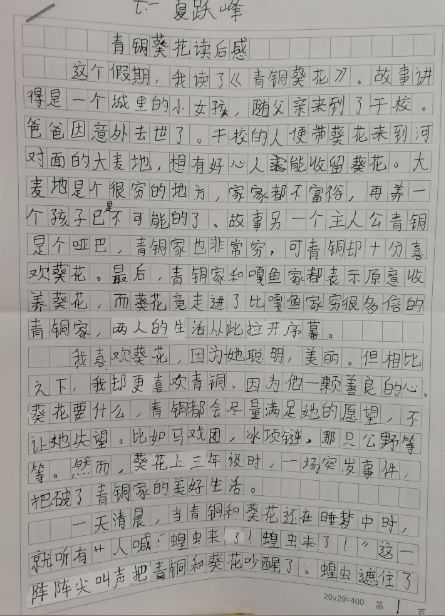 七·一 夏跃峰
青铜葵花读后感
这个假期，我读了《青铜葵花》。故事讲
得是一个城里的小女孩，随父亲来到了干校。
爸爸因意外去世了。干校的人便带葵花来到河
对面的大麦地，想有好心人能收留葵花。大
麦地是个很穷的地方，家家都不富裕，再养一
个孩子已是不可能的了。故事另一个主人公青铜
是个哑巴，青铜家也非常穷，可青铜却十分喜
欢葵花。最后，青铜家和嘎鱼家都表示原意收
养葵花，而葵花竟走进了比嘎鱼家穷很多倍的
青铜家，两人的生活从此拉开序幕。
我喜欢葵花，因为她聪明，美丽。但相比
之下，我却更喜欢青铜，因为他一颗善良的心。
葵花要什么，青铜都会尽量满足她的愿望，不
让她失望。比如马戏团，冰项链，那只公野等
等。然而，葵花上三年级时，一场突发事件，
把破了青铜家的美好生活。
一天清晨，当青铜和葵花还在睡梦中时，
就听有人喊：“蝗虫来了！蝗虫来了！”这一
阵阵尖叫声把青铜和葵花吵醒了。蝗虫遮住了
20×20=400 第 1 页